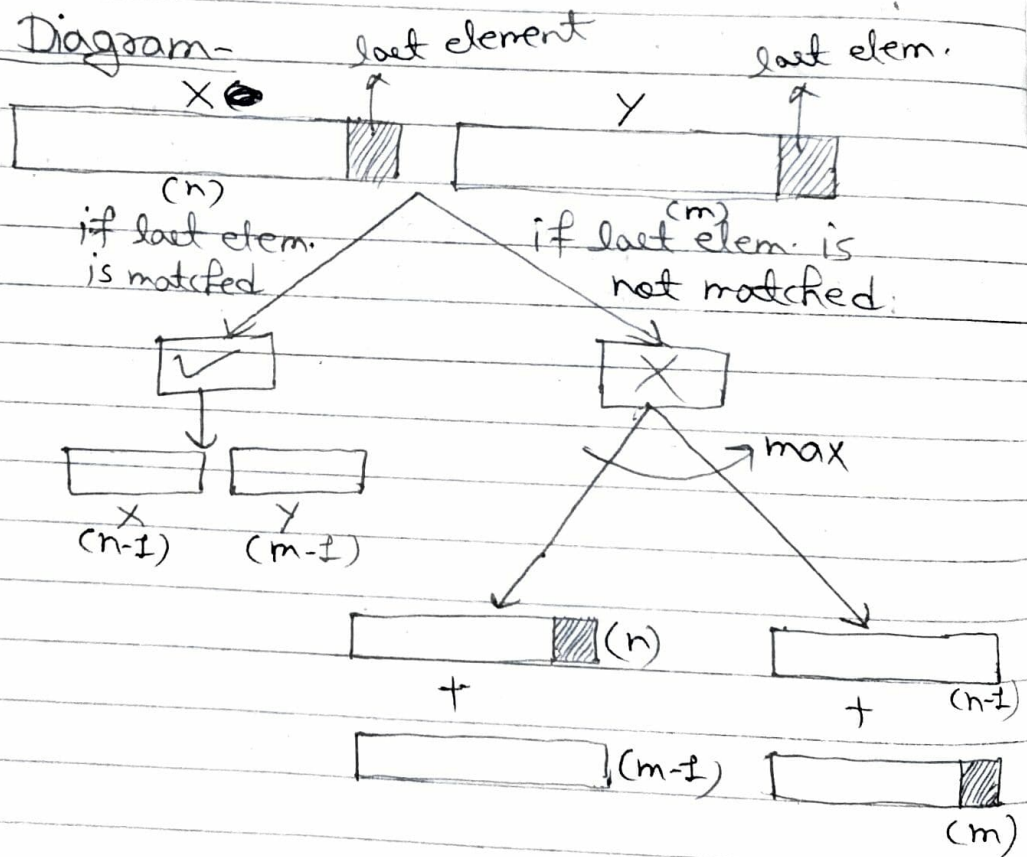 Diagram-
last element
last elem.
X
Y
(n)
(m)
if last elem.
is matched
if last elem. is
not matched.
✓
X
max
X
Y
(n-1)
(m-1)
(n)
+
(m-1)
(n-1)
+
(m)